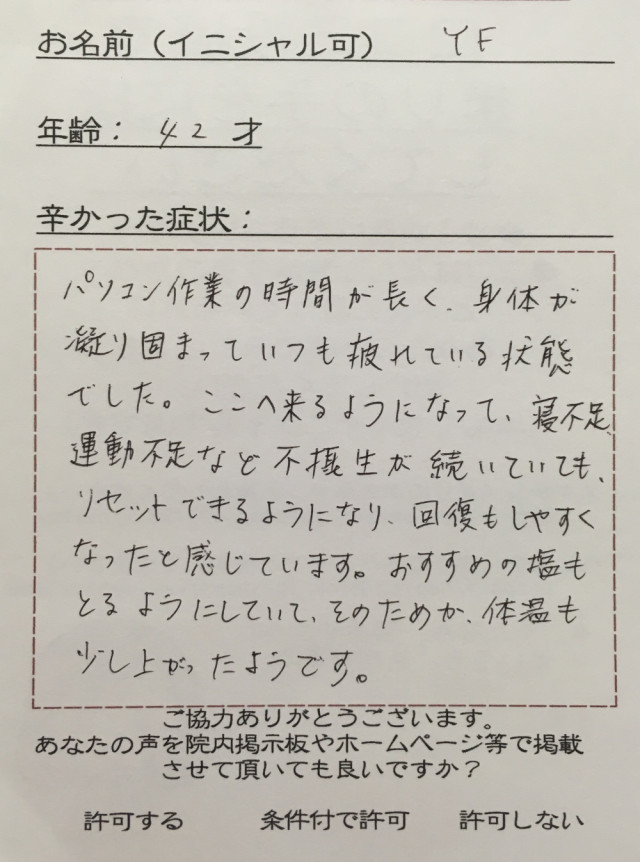 お名前（イニシャル可） YF
年齢： 42 才
辛かった症状：
パソコン作業の時間が長く、身体が
凝り固まっていつも疲れている状態
でした。ここへ来るようになって、寝不足、
運動不足など不摂生が続いていても、
リセットできるようになり、回復もしやすく
なったと感じています。おすすめの塩も
とるようにしていて、そのためか、体温も
少し上がったようです。
ご協力ありがとうございます。
あなたの声を院内掲示板やホームページ等で掲載
させて頂いても良いですか？
許可する 条件付で許可 許可しない